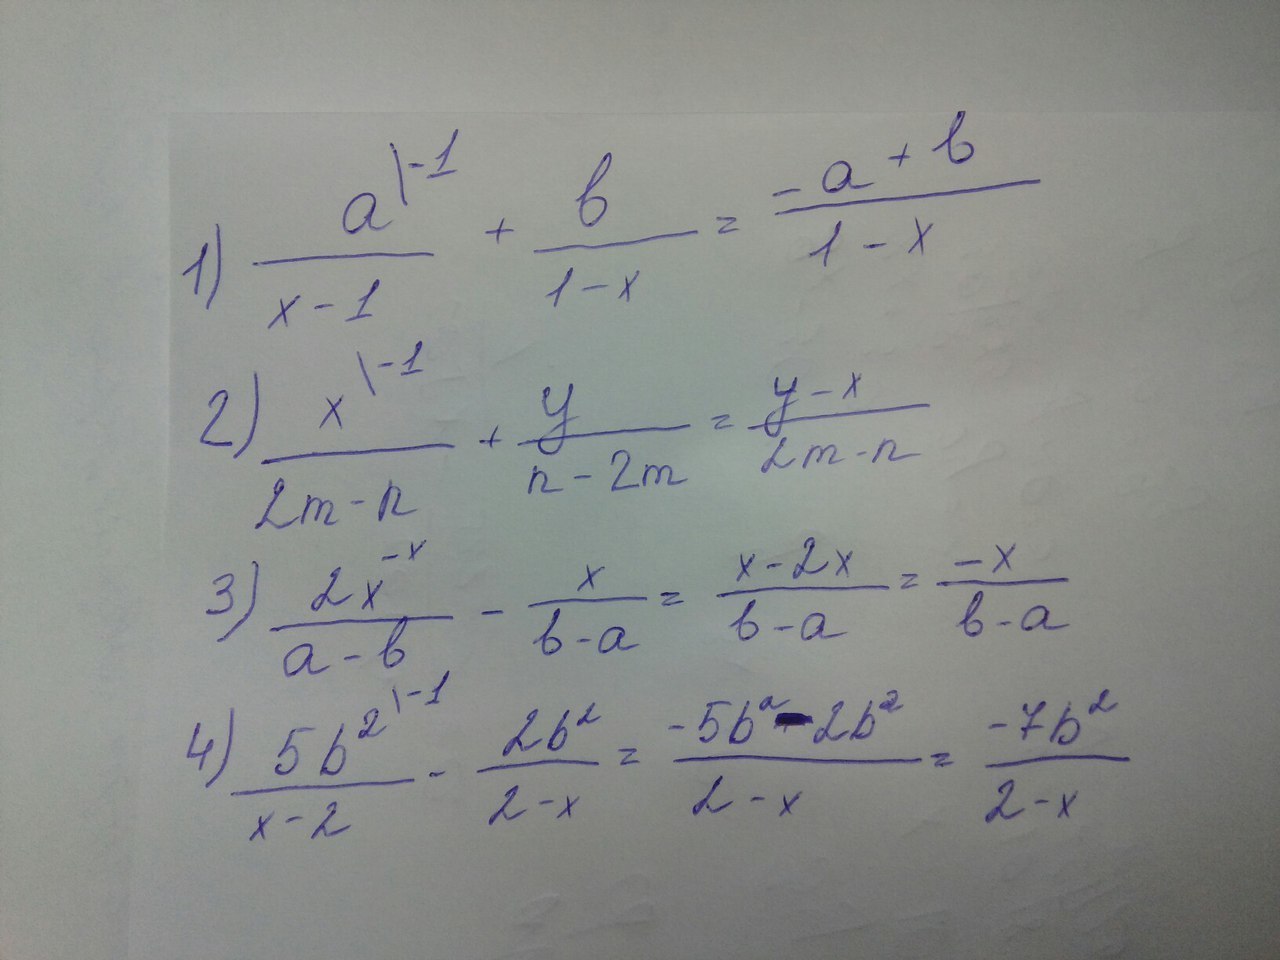 1) a\-1/(x-1) + b/(1-x) = (-a+b)/(1-x)
2) x\-1/(2m-n) + y/(n-2m) = (y-x)/(2m-n)
3) 2x^-x/(a-b) - x/(b-a) = (x-2x)/(b-a) = -x/(b-a)
4) 5b²\-1/(x-2) - 2b²/(2-x) = (-5b²-2b²)/(2-x) = -7b²/(2-x)